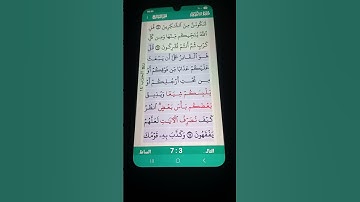 لَنَكُونَنَّ مِنَ ٱلشَّـٰكِرِينَ ٦٣ قُلِ
ٱللَّهُ يُنَجِّيكُم مِّنْهَا وَمِن كُلِّ
كَرْبٍ ثُمَّ أَنتُمْ تُشْرِكُونَ ٦٤ قُلْ
هُوَ ٱلْقَادِرُ عَلَىٰٓ أَن يَبْعَثَ
عَلَيْكُمْ عَذَابًا مِّن فَوْقِكُمْ أَوْ
مِن تَحْتِ أَرْجُلِكُمْ أَوْ
يَلْبِسَكُمْ شِيَعًا وَيُذِيقَ
بَعْضَكُم بَأْسَ بَعْضٍ ٱنظُرْ
كَيْفَ نُصَرِّفُ ٱلْـَٔايَـٰتِ لَعَلَّهُمْ
يَفْقَهُونَ ٦٥ وَكَذَّبَ بِهِۦ قَوْمُكَ
7:3